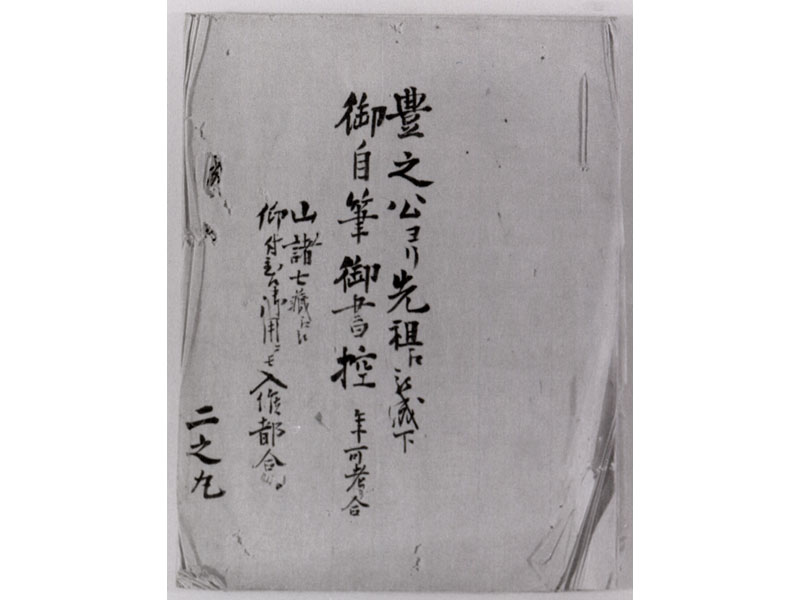 豊之公ヨリ先祖江被成下
御自筆御書控 年可考合
山諸士職江
仰付御用 入作都合
二之九